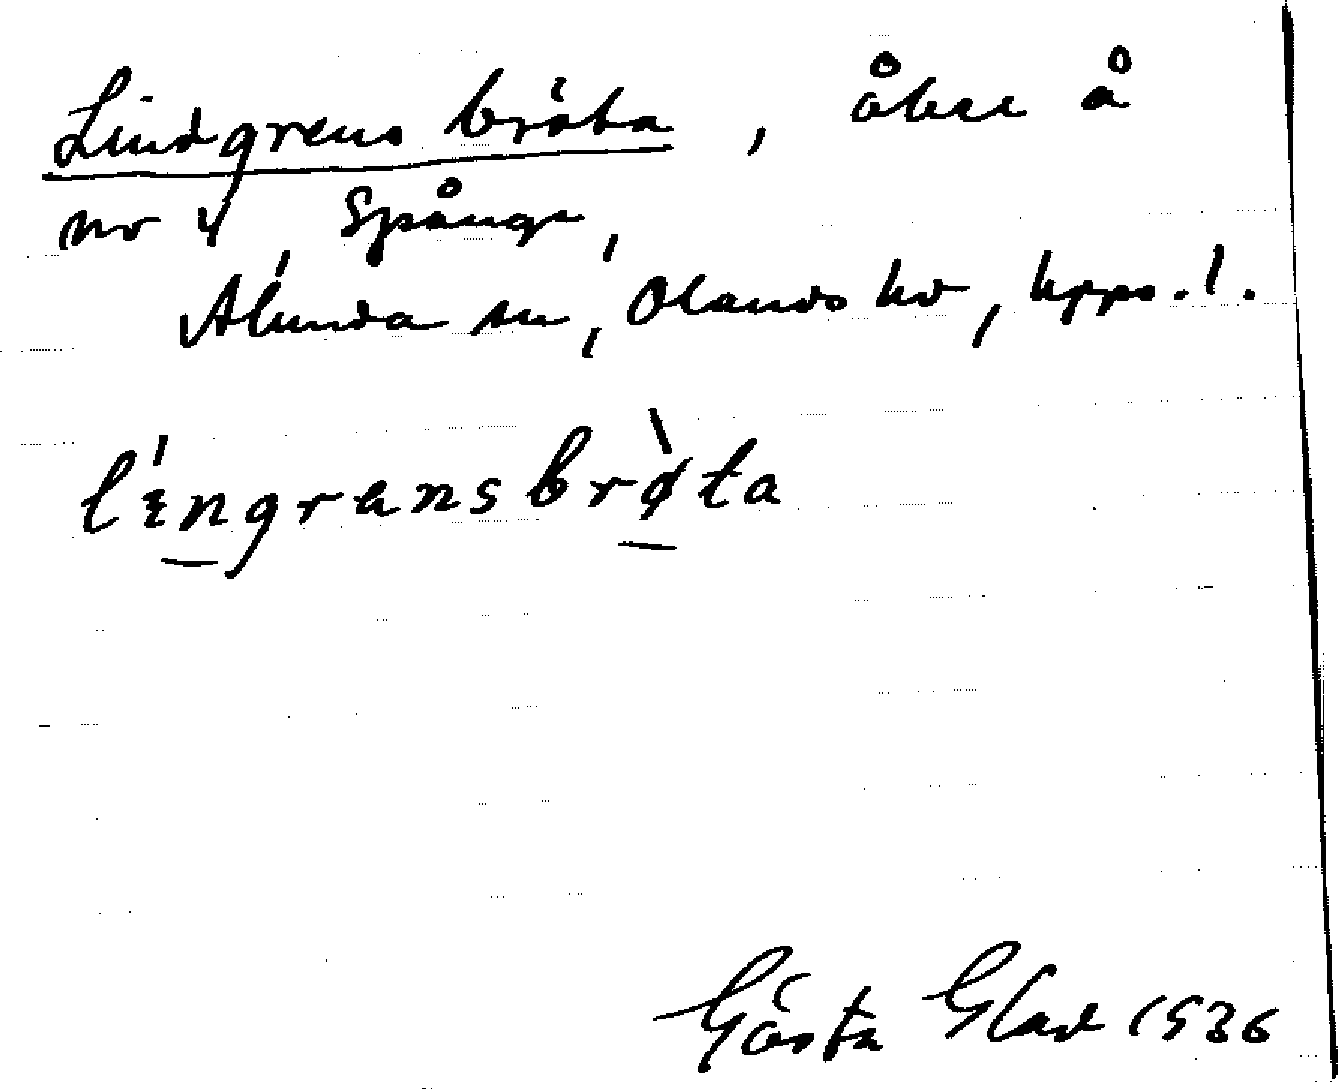 Lindgrens bröta, åker å
nr 4, Spånga,
Alunda sn, Olands hd, Upps. l.
lɩ́ngransbrø̀ta
Gösta Glad 1936